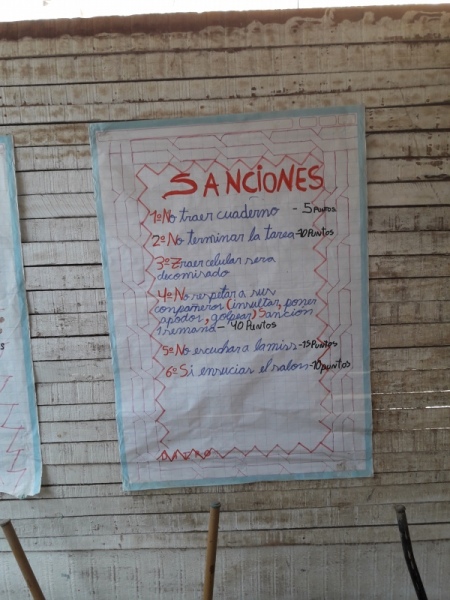 SANCIONES
1º No traer cuaderno - 5 PUNTOS
2º No terminar la tarea -10 PUNTOS
3º Traer celular sera
decomisado
4º No respetar a sus
compañeros (insultar, poner
apodos, golpear) Sancion
1 semana - 40 PUNTOS
5º No escuchar a la miss -15 PUNTOS
6º Si ensucias el salon -10 PUNTOS